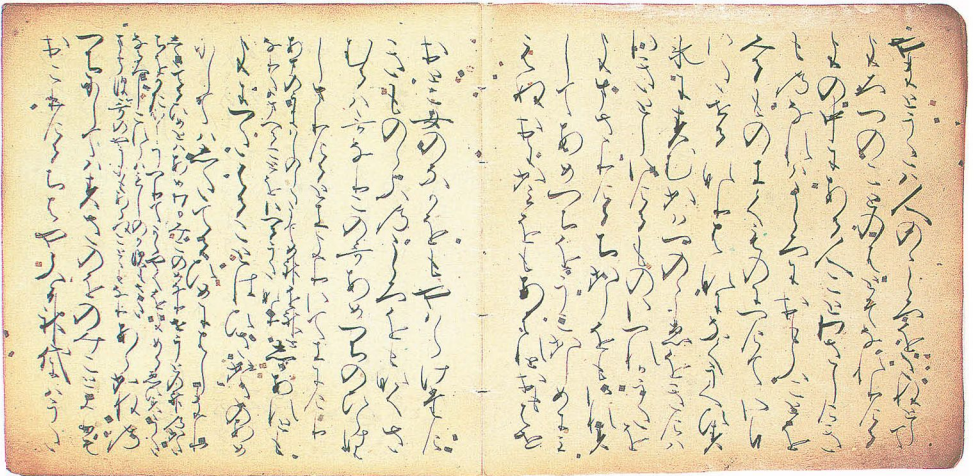 やまとうたは人のこゝろをたねとして
よろつのことのはとそなれりける
よの中にある人ことわさしけき
ものなれはこゝろにおもふことを
みるものきくものにつけていひ
いたせるなりはなになくうくひす
水にすむかはつのこゑをきけは
いきとしいけるものいつれかうたを
よまさりけるちからをもいれす
してあめつちをうこかしめにみ
えぬおに神をもあはれとおもはせ
おとこ女のなかをもやはらけたけ
きものゝふのこゝろをもなくさ
むるは哥なりこの哥あめつちのひらけ
はしまりけるときよりいてきにけり
あまのうきはしのしたにてめ神を神と
なりたまへることをいへるうたなりしかあれとも
よにつたはることはひさかたのあめ
にしてはしたてるひめにはしまり
したてるひめとはあめわかみこのめなりせうとの神の
つちにしてはすさのをのみことよりそ
おこりけるちはやふる神代にはうた